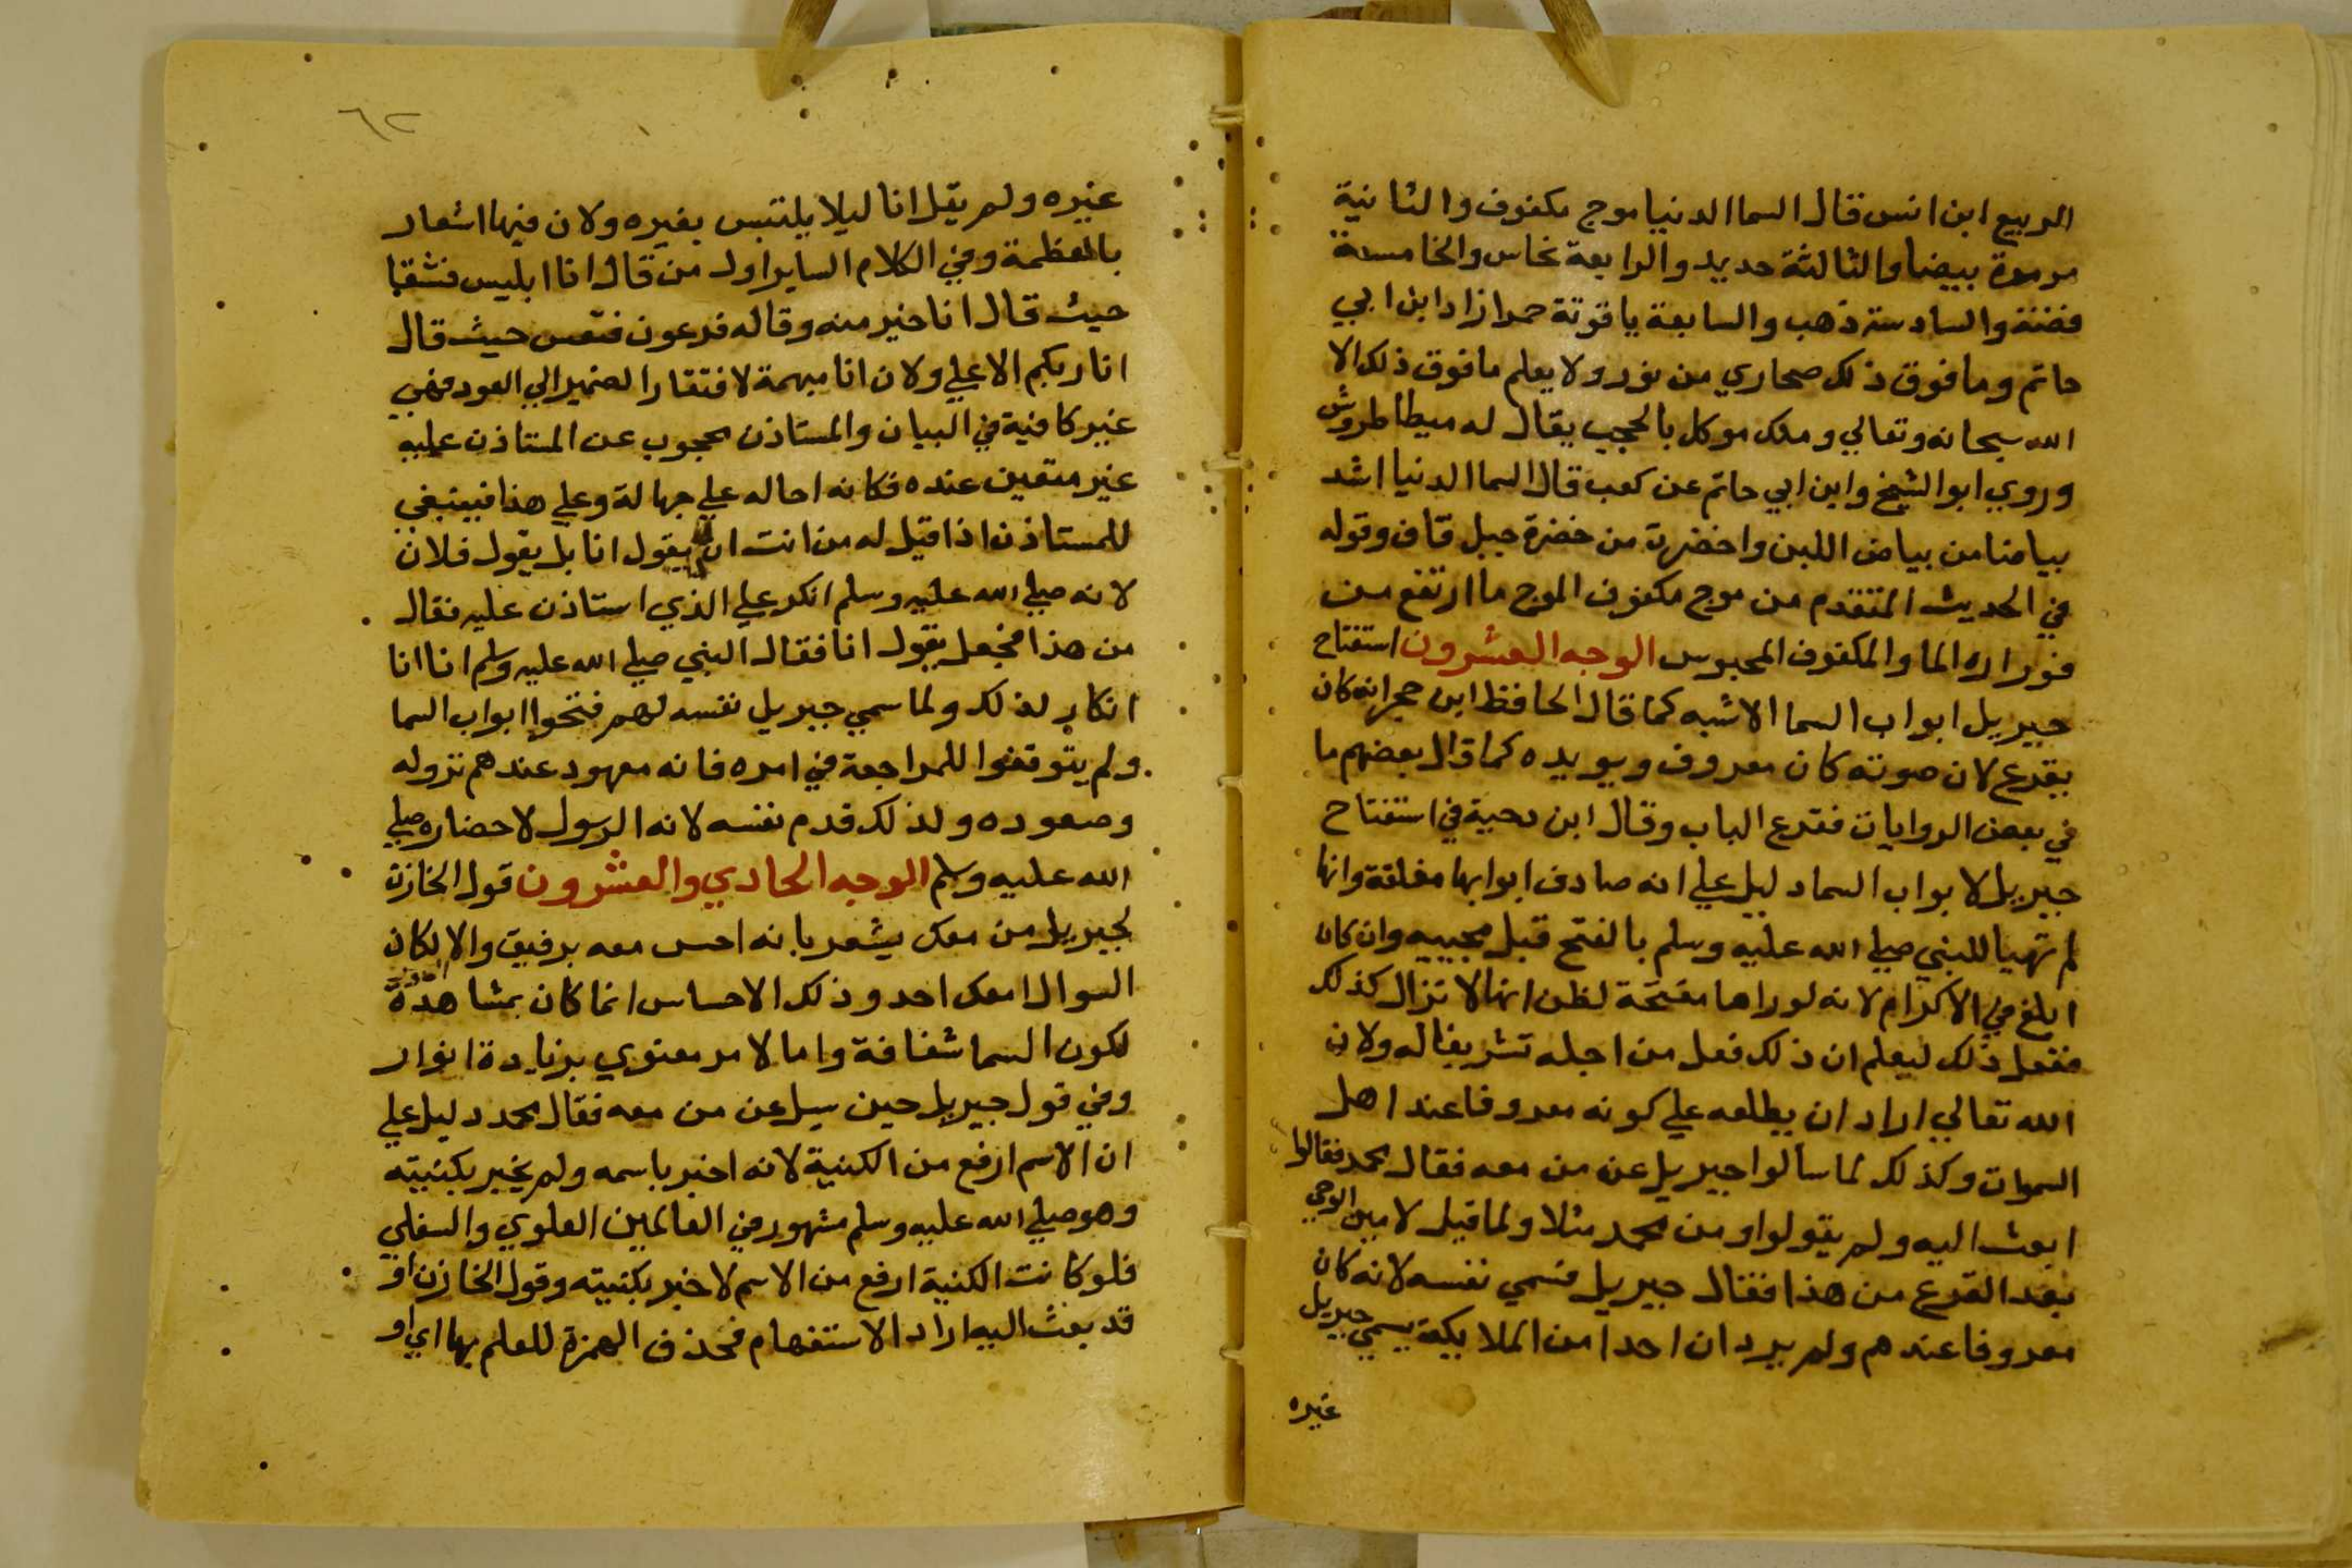 الربيع ابن انس قال السما الدنيا موج مكفوف والثانية
مرمرة بيضا والثالثة حديد والرابعة نحاس والخامسة
فضة والسادسة ذهب والسابعة ياقوتة حمرا زاد ابن ابي
حاتم وما فوق ذلك صحاري من نور ولا يعلم ما فوق ذلك الا
الله سبحانه وتعالي وملك موكل بالحجب يقال له ميطاطروش
وروي ابو الشيخ وابن ابي حاتم عن كعب قال السما الدنيا اشد
بياضا من بياض اللبن واخضرت من خضرة جبل قاف وقوله
في الحديث المتقدم من موج مكفوف الموج ما ارتفع من
فوراره الما والمكفوف المحبوس الوجه العشرون استفتاح
جبريل ابواب السما الاشبه كما قال الحافظ ابن حجر انه كان
بقرع لان صوته كان معروف ويويده كما قال بعضهم ما
في بعض الروايات فقرع الباب وقال ابن دحية في استفتاح
جبريل لابواب السما دليل علي انه صادف ابوابها مغلقة وانها
لم تهيا للنبي صلي الله عليه وسلم بالفتح قبل مجييه وان كان
ابلغ في الاكرام لانه لو راها مفتحة لظن انها لا تزال كذلك
ففعل ذلك ليعلم ان ذلك فعل من اجله تشريفا له ولان
الله تعالي اراد ان يطلعه علي كونه معروفا عند اهل
السموات وكذلك لما سالوا جبريل عن من معه فقال محمد فقالوا
ابعث اليه ولم يقولوا ومن محمد مثلا ولما قيل لامين الوحي
بعد القرع من هذا فقال جبريل فسمي نفسه لانه كان
معروفا عندهم ولم يرد ان احدا من الملايكة يسمي جبريل
غيره
٦٢
غيره ولم يقل انا ليلا يلتبس بغيره ولان فيها اشعار
بالعظمة وفي الكلام الساير اول من قال انا ابليس فشقا
حيث قال انا خير منه وقاله فرعون فتعس حيث قال
انا ربكم الاعلي ولان انا مبهمة لافتقار الضمير الي العود فهي
غير كافية في البيان والمستاذن محجوب عن المستاذن عليه
غير متعين عنده فكانه احاله علي جهالة وعلي هذا فينبغي
للمستاذن اذا قيل له من انت ان يقول انا بل يقول فلان
لانه صلي الله عليه وسلم انكر علي الذي استاذن عليه فقال
من هذا فجعل يقول انا فقال النبي صلي الله عليه وسلم انا انا
انكار لذلك ولما سمي جبريل نفسه لهم فتحوا ابواب السما
ولم يتوقفوا للمراجعة في امره فانه معهود عندهم نزوله
وصعوده ولذلك قدم نفسه لانه الرسول لاحضاره صلي
الله عليه وسلم الوجه الحادي والعشرون قول الخازن
لجبريل من معك يشعر بانه احس معه برفيق والا لكان
السوال امعك احد وذلك الاحساس انما كان بمشاهدة
لكون السما شفافة واما لامر معنوي بزيادة انوار
وفي قول جبريل حين سيل عن من معه فقال محمد دليل علي
ان الاسم ارفع من الكنية لانه اخبر باسمه ولم يخبر بكنيته
وهو صلي الله عليه وسلم مشهور في العالمين العلوي والسفلي
فلو كانت الكنية ارفع من الاسم لاخبر بكنيته وقول الخازن او
قد بعث اليه اراد الاستفهام فحذف الهمزة للعلم بها اي او